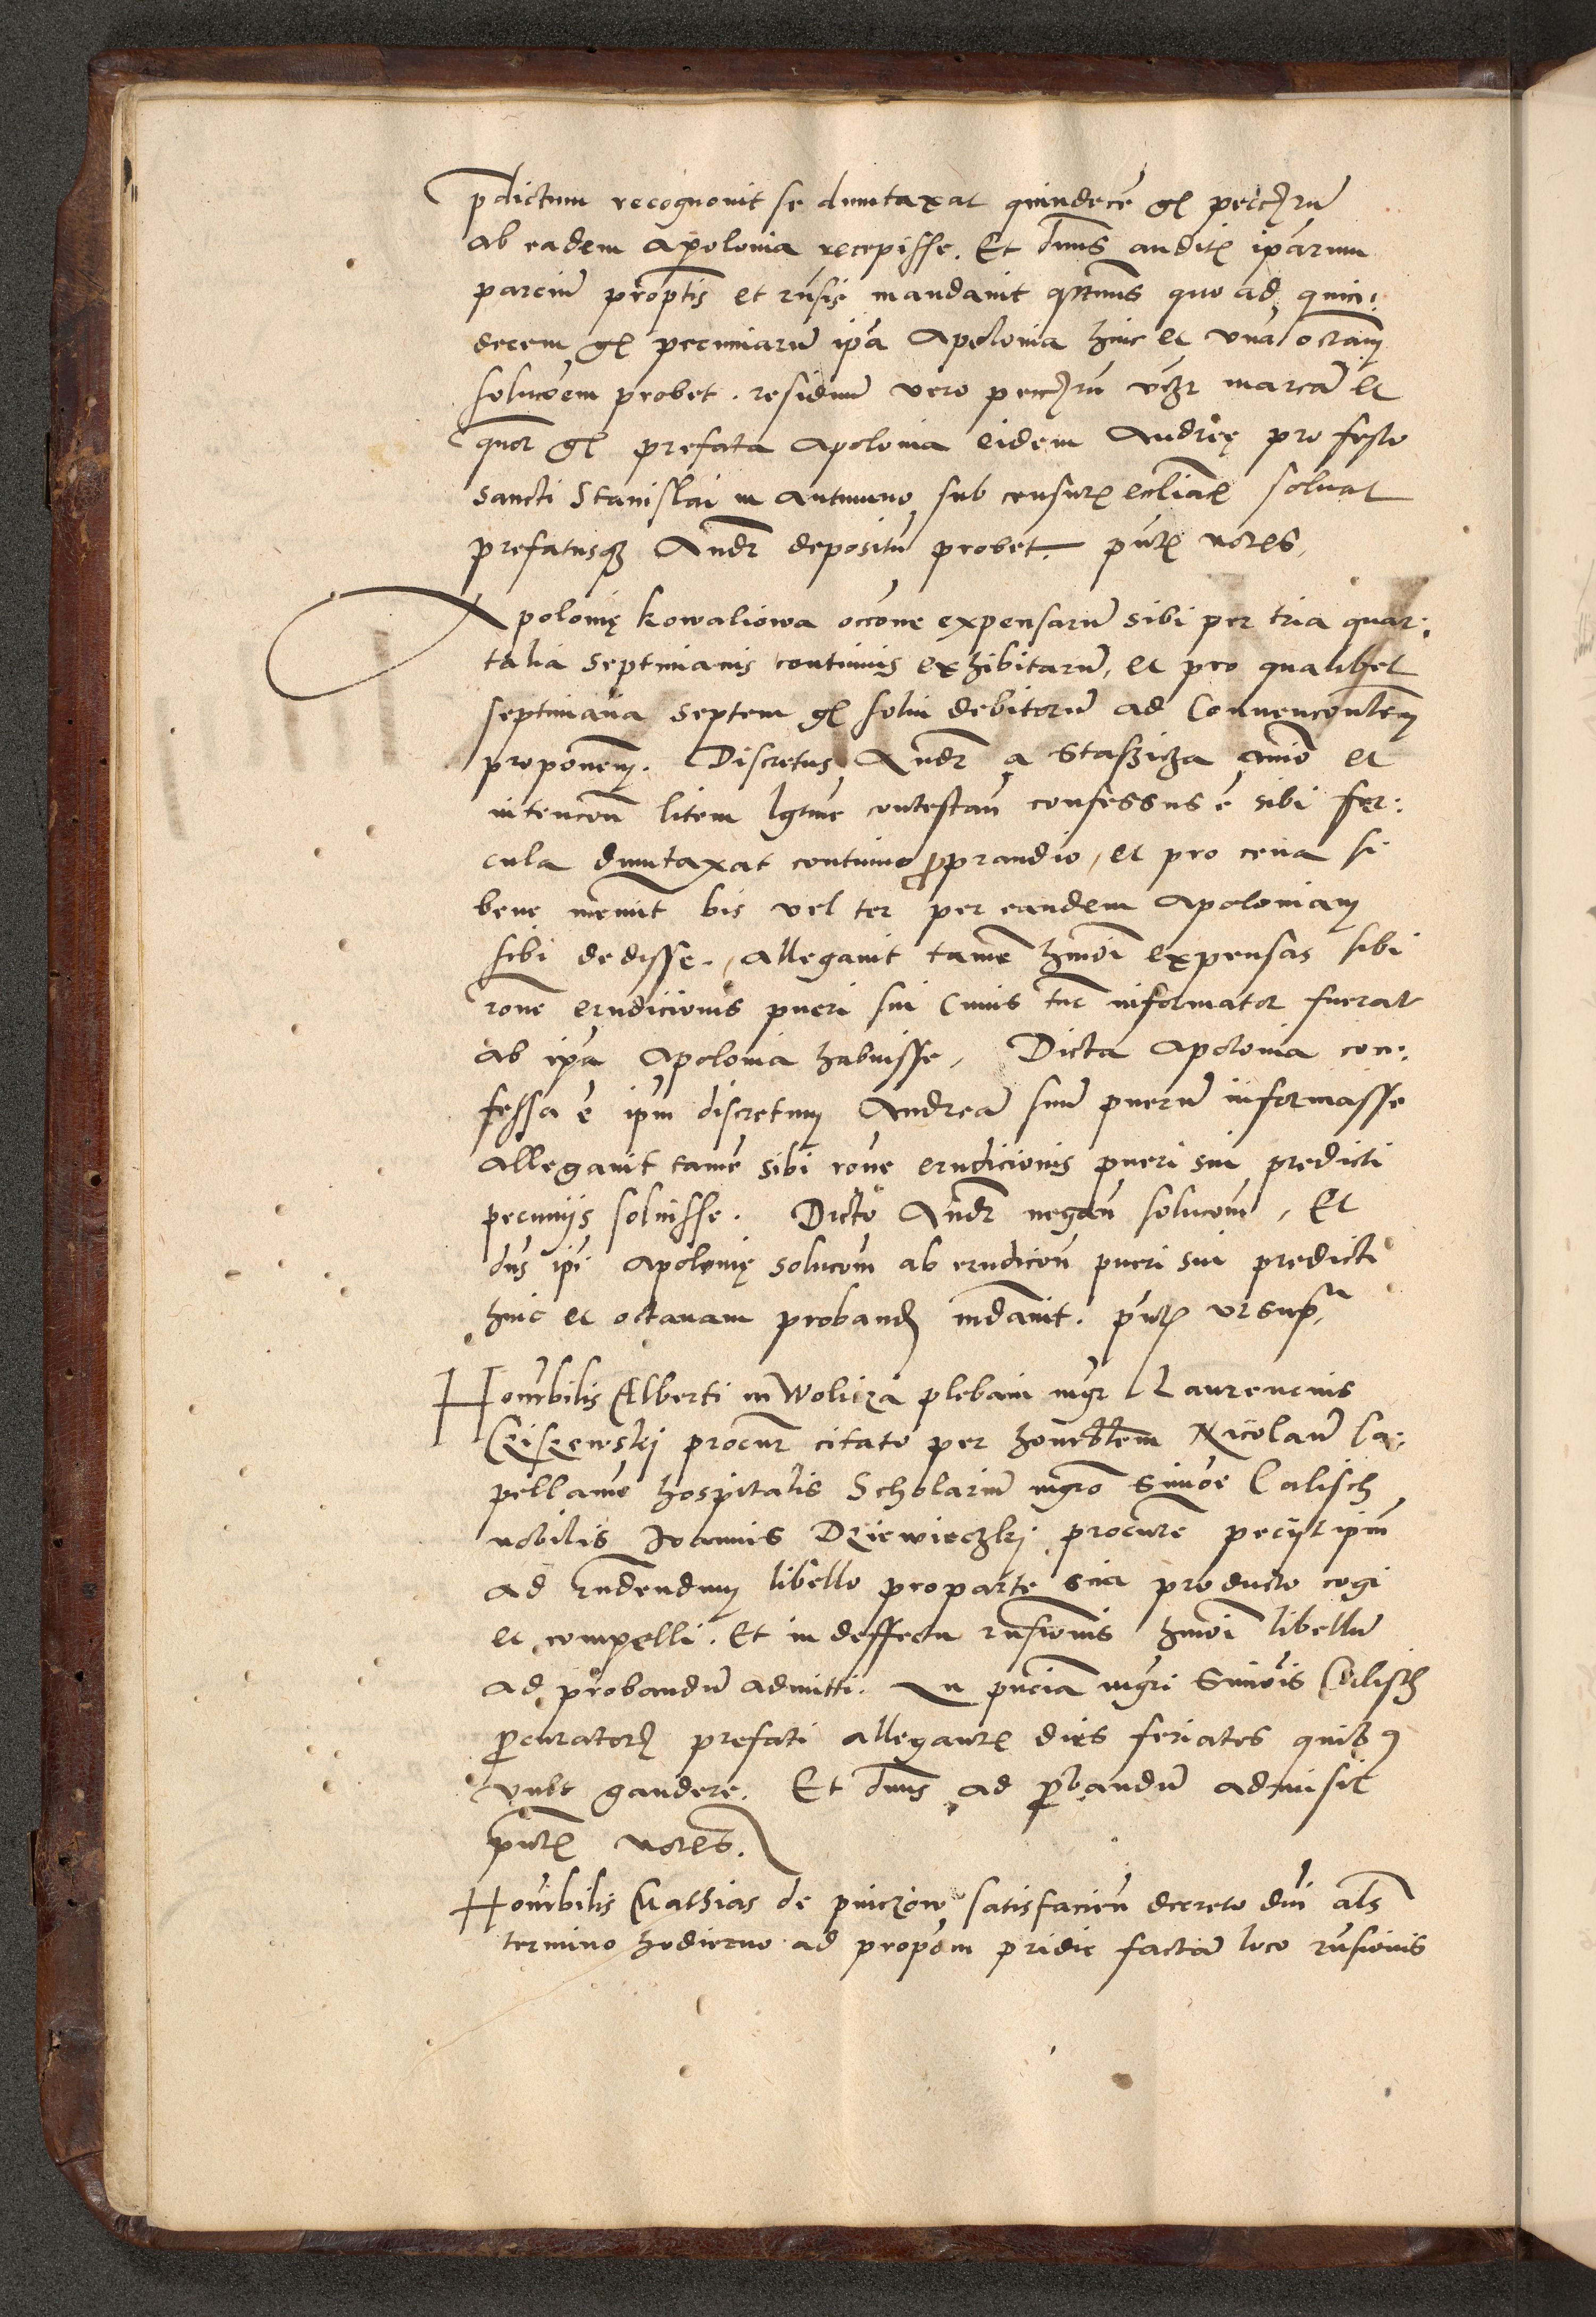 pdictum recognovit se dumtaxat quindecē gl pecciarū
ab eadem Apolonia recepisse. Et dnus auditis iparum
parciū proptis et rnsis mandavit qtnus quo ad quin:
decem gl pecuniarū ipa Apolonia hinc et una octavā
solucōem probet. residuū vero pecciarū vcz marcā et
quor gl prefata Apolonia eidem Andreę pro festo
sancti Stanislai in autumno sub censuris ecclias solvat
prefatusq Andr depositū probet. pntibus notes.
Apolonię kowaliowa occōne expensarū sibi per tria quar:
talia septimanis continuis exhibitarū, et pro qualibet
septimana septem gl solvi debitorū ad Convenconlem
proponem. Discretus Andr a Staszicza animo et
intencōn litem lgtme contestan confessus ē sibi fer:
cula dumtaxat continuo pro prandio, et pro cena si
bene meminit bis vel ter per eandem Apoloniam
sibi dedisse. Allegavit tamē hmōi expensas sibi
rōne erudicionis pueri sui Cuius tuc informator fuerat
ab ipa Apolonia habuisse. Dicta Apolonia con:
fessa ē ipm discretum Andreā suū puerū informasse
Allegavit tamē sibi rōne erudicionis pueri sui predicti
pecuniis solvisse. Dicto Andr negan solucōm, Et
dns ipi Apolonię solucōm ab erudicōn pueri sui predicti
hinc et octavam proband mdavit. pntibus ut supra
Honrbilis Alberti in Wolicza plebani mgr Laurencius
procur citato per honrblem Nicolaū Ca:
pellanū hospitalis Scholariū mgro Simōe Calisch
nobilis Joannis Dziewieczki procure peciit ipm
ad rndendum libello pro parte sua producto cogi
et compelli. Et in deffectu rnsionis hmōi libellū
ad probandū admitti. In pncia mgri Simōis Calisch
procuratoris prefati allegantis dies feriatos quibus
vult gaudere. Et dnus ad probandū admisit
pntibus notes.
Honrbilis Mathias de pinczow satisfacien decreto dni als
termino hodierno ad propōem pridie factā loco rnsionis